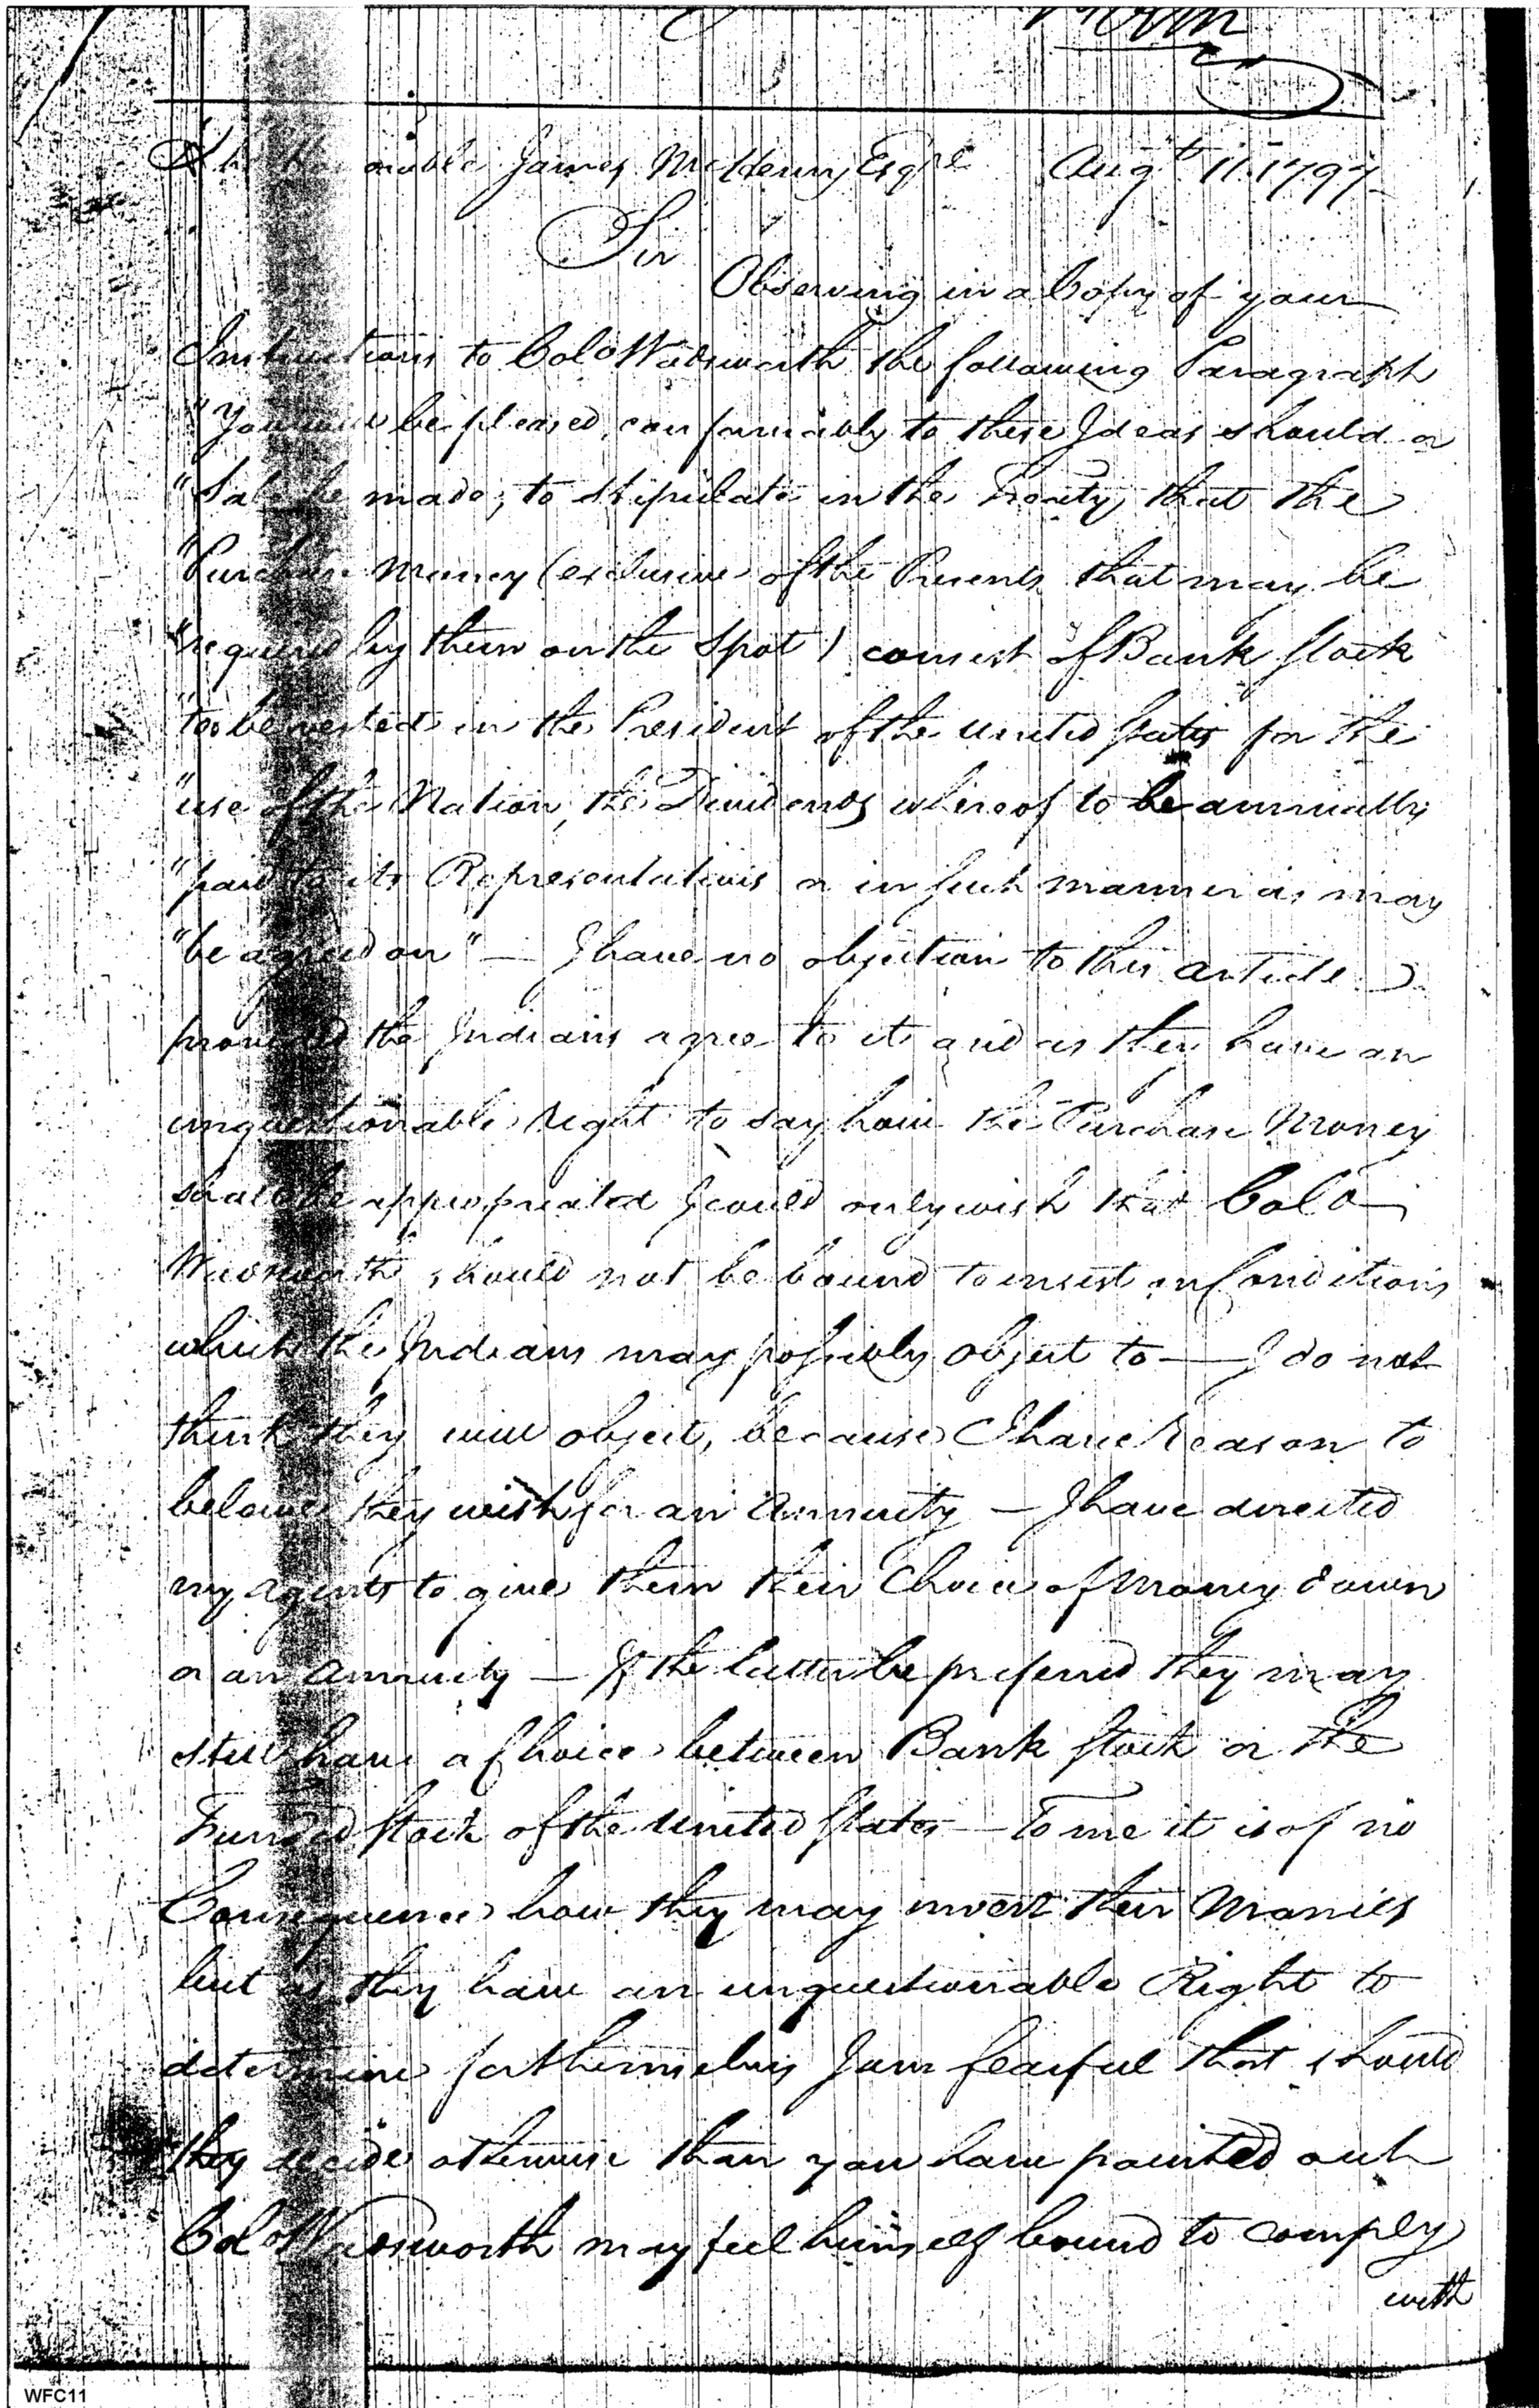 The Honorable James McHenry Esqre Augt 11. 1797
Sir
Observing in a Copy of your
Instructions to Colo Wadsworth the following Paragraph
"You will be pleased, conformably to these Ideas should a
"Sale be made, to stipulate in the Treaty, that the
"Purchase Money (exclusive of the Presents that may be
"required by them on the Spot) consist of Bank Stock
"to be vested in the President of the United States for the
"use of the Nation, the Dividends whereof to be annually
"paid to its Representatives or in such manner as may
"be agreed on" — I have no objection to this article
provided the Indians agree to it and as they have an
unquestionable Right to say how the Purchase Money
shall be appropriated I could only wish that Colo
Wadsworth should not be bound to insist on Conditions
which the Indians may possibly object to — I do not
think they will object, because I have Reason to
believe they wish for an Annuity — I have directed
my agents to give them their Choice of Money down
or an Annuity — If the latter be preferred they may
still have a Choice between Bank Stock or the
Funded Stock of the United States — To me it is of no
Consequence how they may invest their Monies
but as they have an unquestionable Right to
determine for themselves I am fearful that should
they decide otherwise than you have pointed out
Colo Wadsworth may feel himself bound to comply
with
WFC11